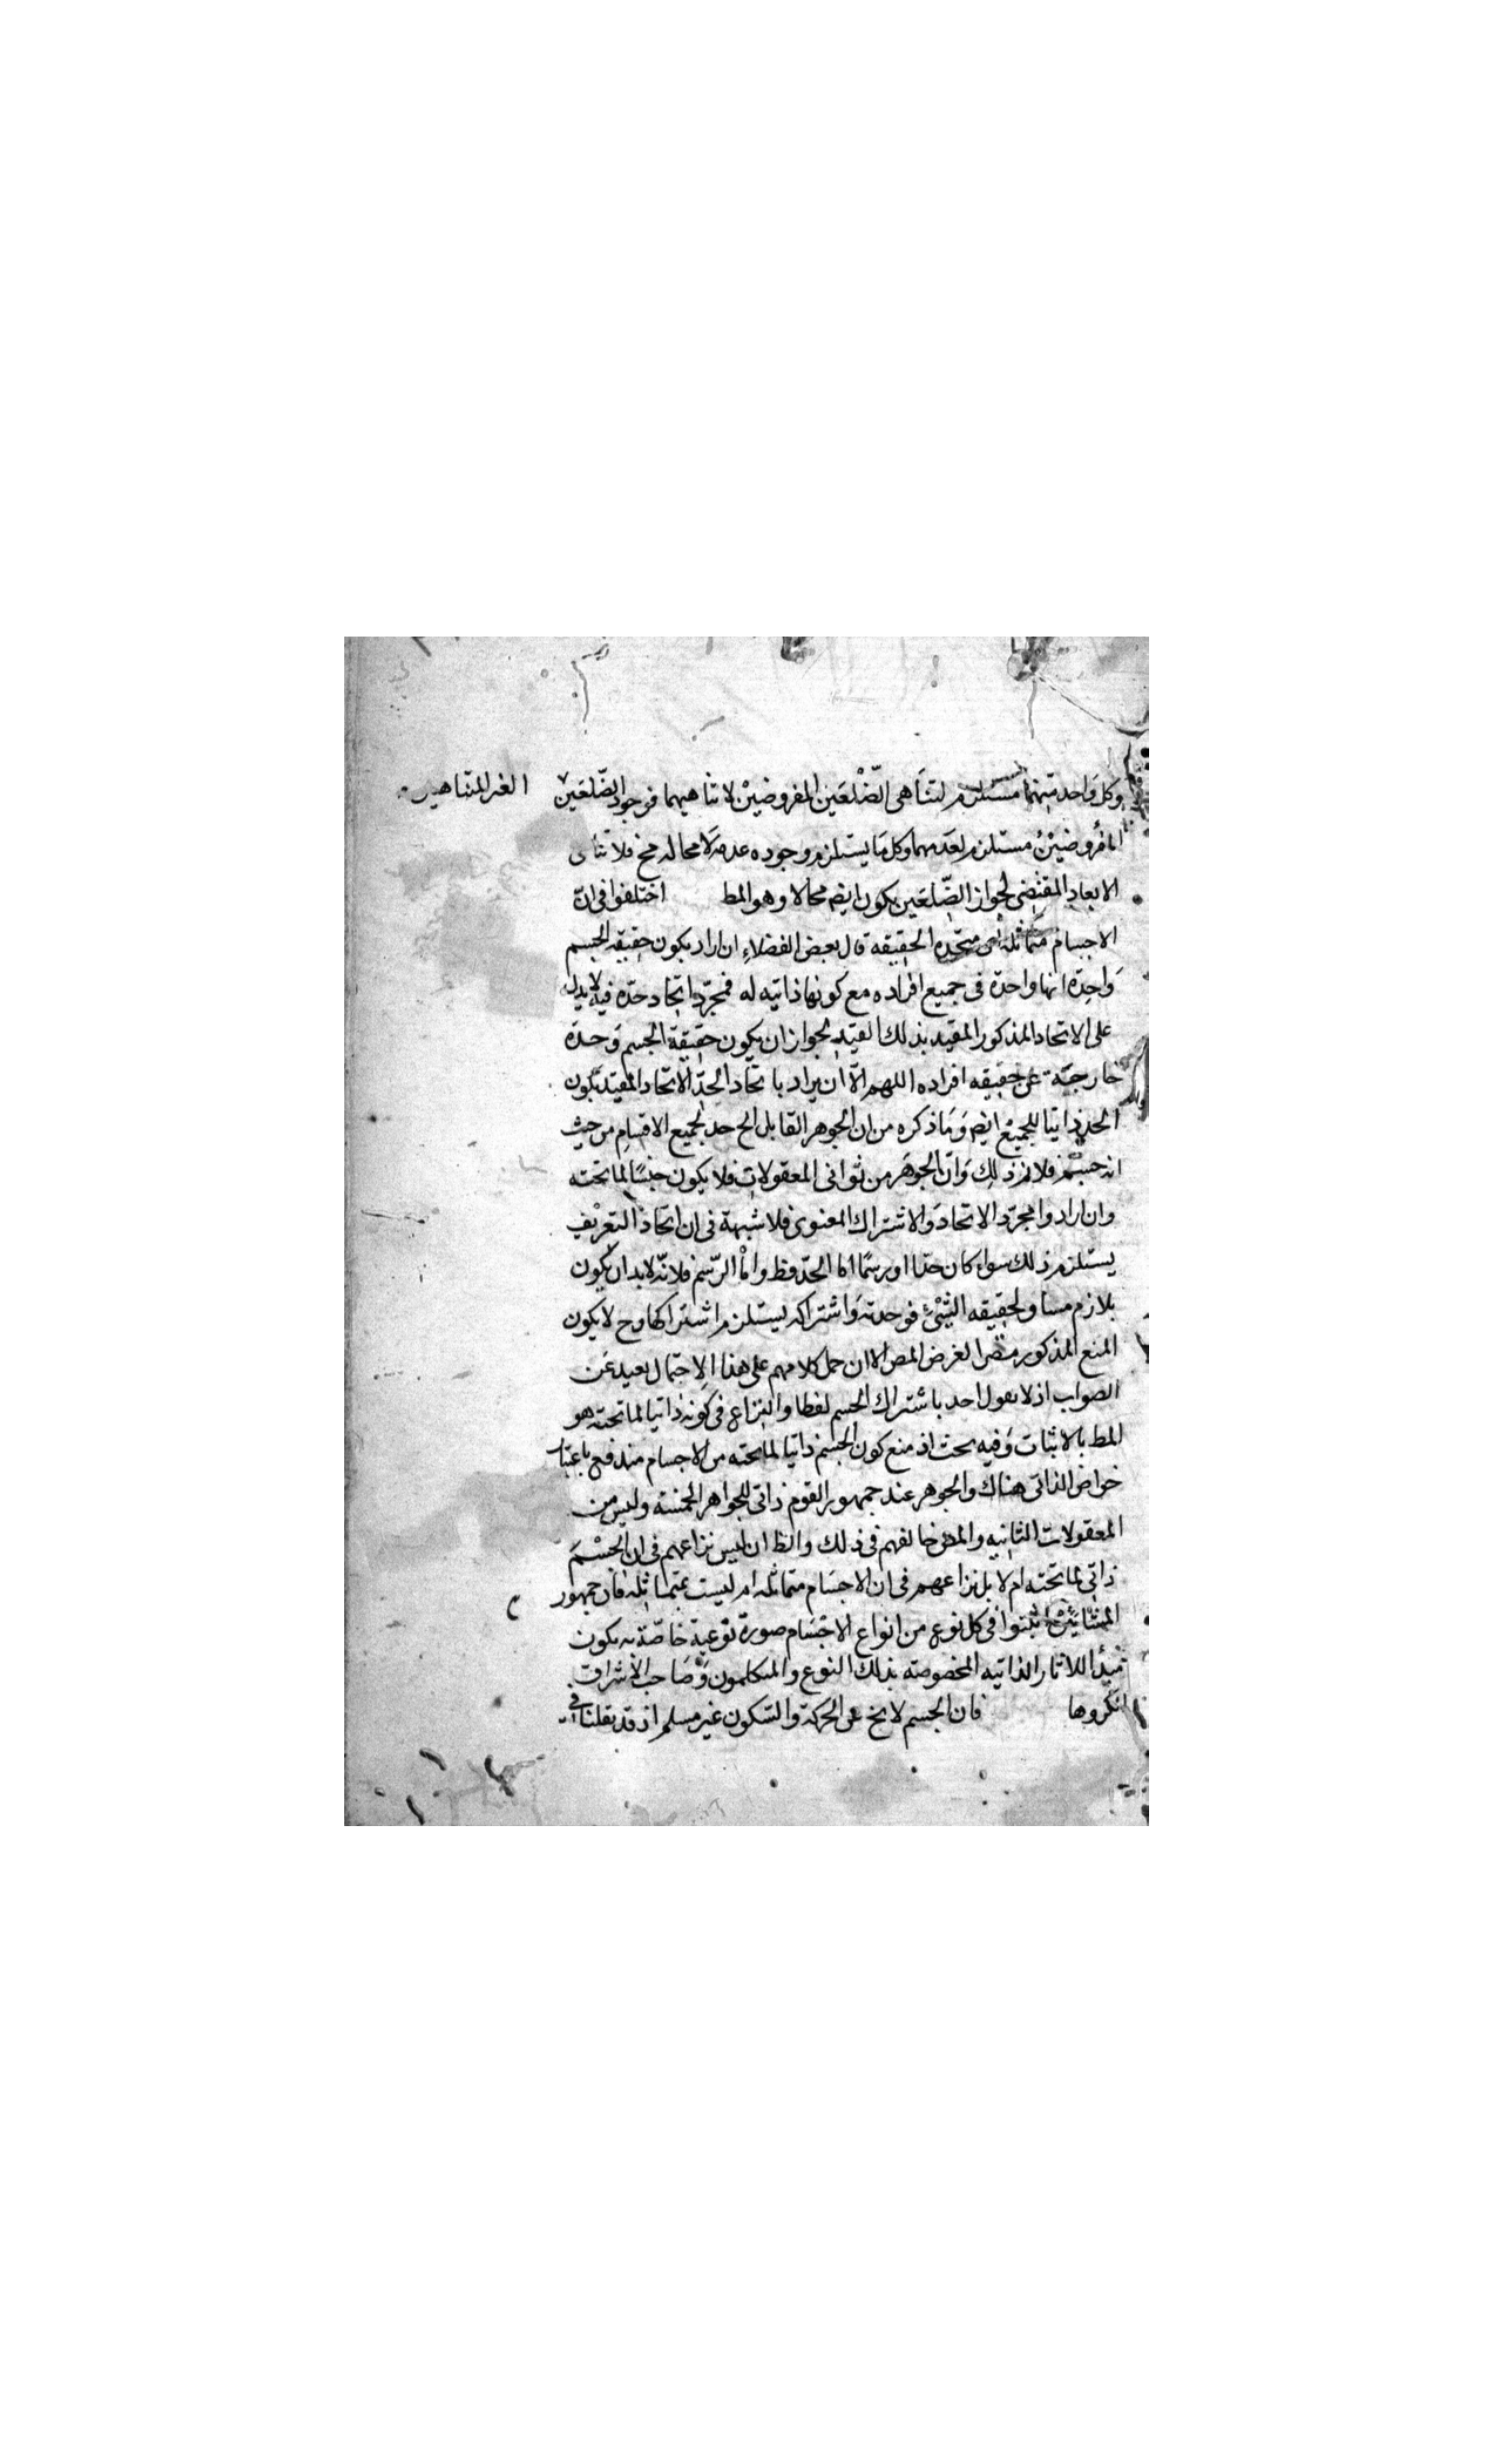 وكل واحد منهما مستلزم لتناهى الضلعين المفروضين لا تناهيهما فوجود الضلعين الغير المتناهيين
المفروضين مستلزم لعدمهما وكل ما يستلزم وجوده عدمه لا محاله مح فلا تناهى
الابعاد المقتضى لجواز الضلعين يكون ايضا محالا وهو المط اختلفوا فى ان
الاجسام متماثله اى متحده الحقيقه قال بعض الفضلاء ان اراد بكون حقيقه الجسم
واحدة انها واحدة فى جميع افراده مع كونها ذاتيه له فمجرد اتحاد حده فيه لا يدل
على الاتحاد المذكور المقيد بذلك القيد لجواز ان يكون حقيقة الجسم وحده
خارجية عن حقيقه افراده اللهم الا ان يراد باتحاد الحد الاتحاد المقيد بكون
الحد ذاتيا للجميع ايضا وما ذكره من ان الجوهر القابل الخ حد لجميع الاقسام من حيث
انه جسم فلا نم ذلك وان الجوهر من ثوانى المعقولات فلا يكون جنسا لما تحته
وان ارادوا مجرد الاتحاد والاشتراك المعنوى فلا شبهة فى ان اتحاد التعريف
يستلزم ذلك سواء كان حدا او رسما اما الحد فظ واما الرسم فلانه لا بد ان يكون
بلازم مساو لحقيقه الشئ فوحدته واشتراكه يستلزم اشتراكها وح لا يكون
المنع المذكور مضرا لغرض المص الا ان حمل كلامهم على هذا الاحتمال بعيد عن
الصواب اذ لا يقول احد باشتراك الجسم لفظا والنزاع فى كونه ذاتيا لما تحته هو
المط بالاثبات وفيه بحث اذ منع كون الجسم ذاتيا لما تحته من الاجسام مندفع باعتبار
خواص الذاتى هناك والجوهر عند جمهور القوم ذاتى للجواهر الخمسة وليس من
المعقولات الثانيه والمص خالفهم فى ذلك والظ ان ليس نزاعهم فى ان الجسم
ذاتى لما تحته ام لا بل نزاعهم فى ان الاجسام متماثله ام ليست بمتماثله فان جمهور
المشائين اثبتوا فى كل نوع من انواع الاجسام صورة نوعية خاصة به يكون
مبدأ للاثار الذاتيه المخصوصه بذلك النوع والمتكلمون وصاحب الاشراق
انكروها فان الجسم لا يخ عن الحركة والسكون غير مسلم اذ قد نقلنا فى